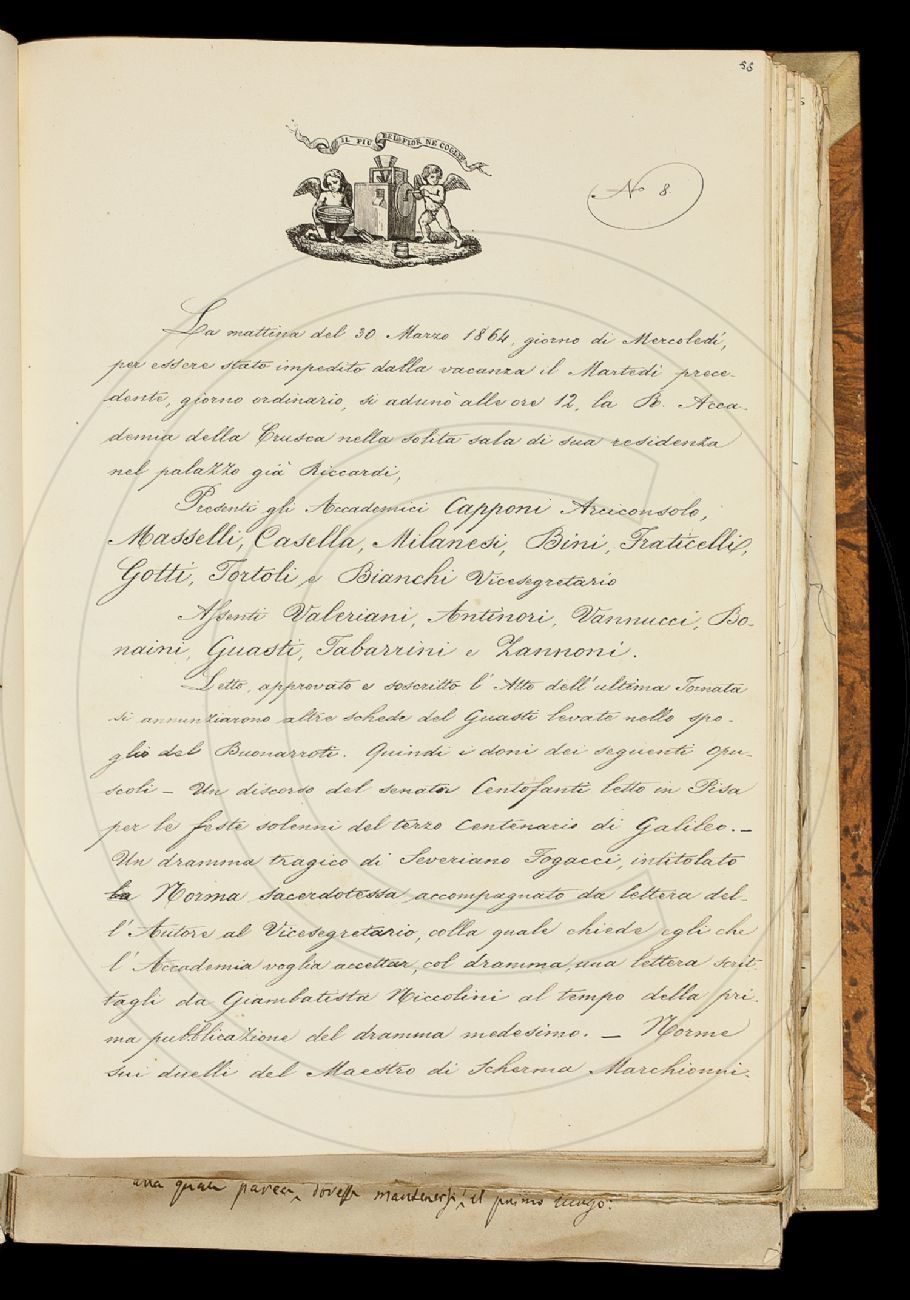 58
IL PIÙ BEL FIOR NE COGLIE
N 8
La mattina del 30 Marzo 1864, giorno di Mercoledì,
per essere stato impedito dalla vacanza il Martedì prece-
dente, giorno ordinario, si adunò alle ore 12, la R. Acca-
demia della Crusca nella solita sala di sua residenza
nel palazzo già Riccardi,
Presenti gli Accademici Capponi Arciconsolo,
Masselli, Casella, Milanesi, Bini, Fraticelli,
Gotti, Tortoli e Bianchi Vicesegretario
Assenti Valeriani, Antinori, Vannucci, Bo-
naini, Guasti, Tabarrini e Zannoni.
Letto, approvato e soscritto l'Atto dell'ultima Tornata
si annunziarono altre schede del Guasti levate nello spo-
glio del Buonarroti. Quindi i doni dei seguenti Opu-
scoli – Un discorso del senator Centofanti letto in Pisa
per le feste solenni del terzo Centenario di Galileo. –
Un dramma tragico di Severiano Fogacci, intitolato
la Norma sacerdotessa accompagnato da lettera del-
l'Autore al Vicesegretario, colla quale chiede egli che
l'Accademia voglia accettar, col dramma, una lettera scrit-
tagli da Giambatista Niccolini al tempo della pri-
ma pubblicazione del dramma medesimo. – Norme
sui duelli del Maestro di Scherma Marchionni.
quale parea, dovesse mantenersi il primo luogo.